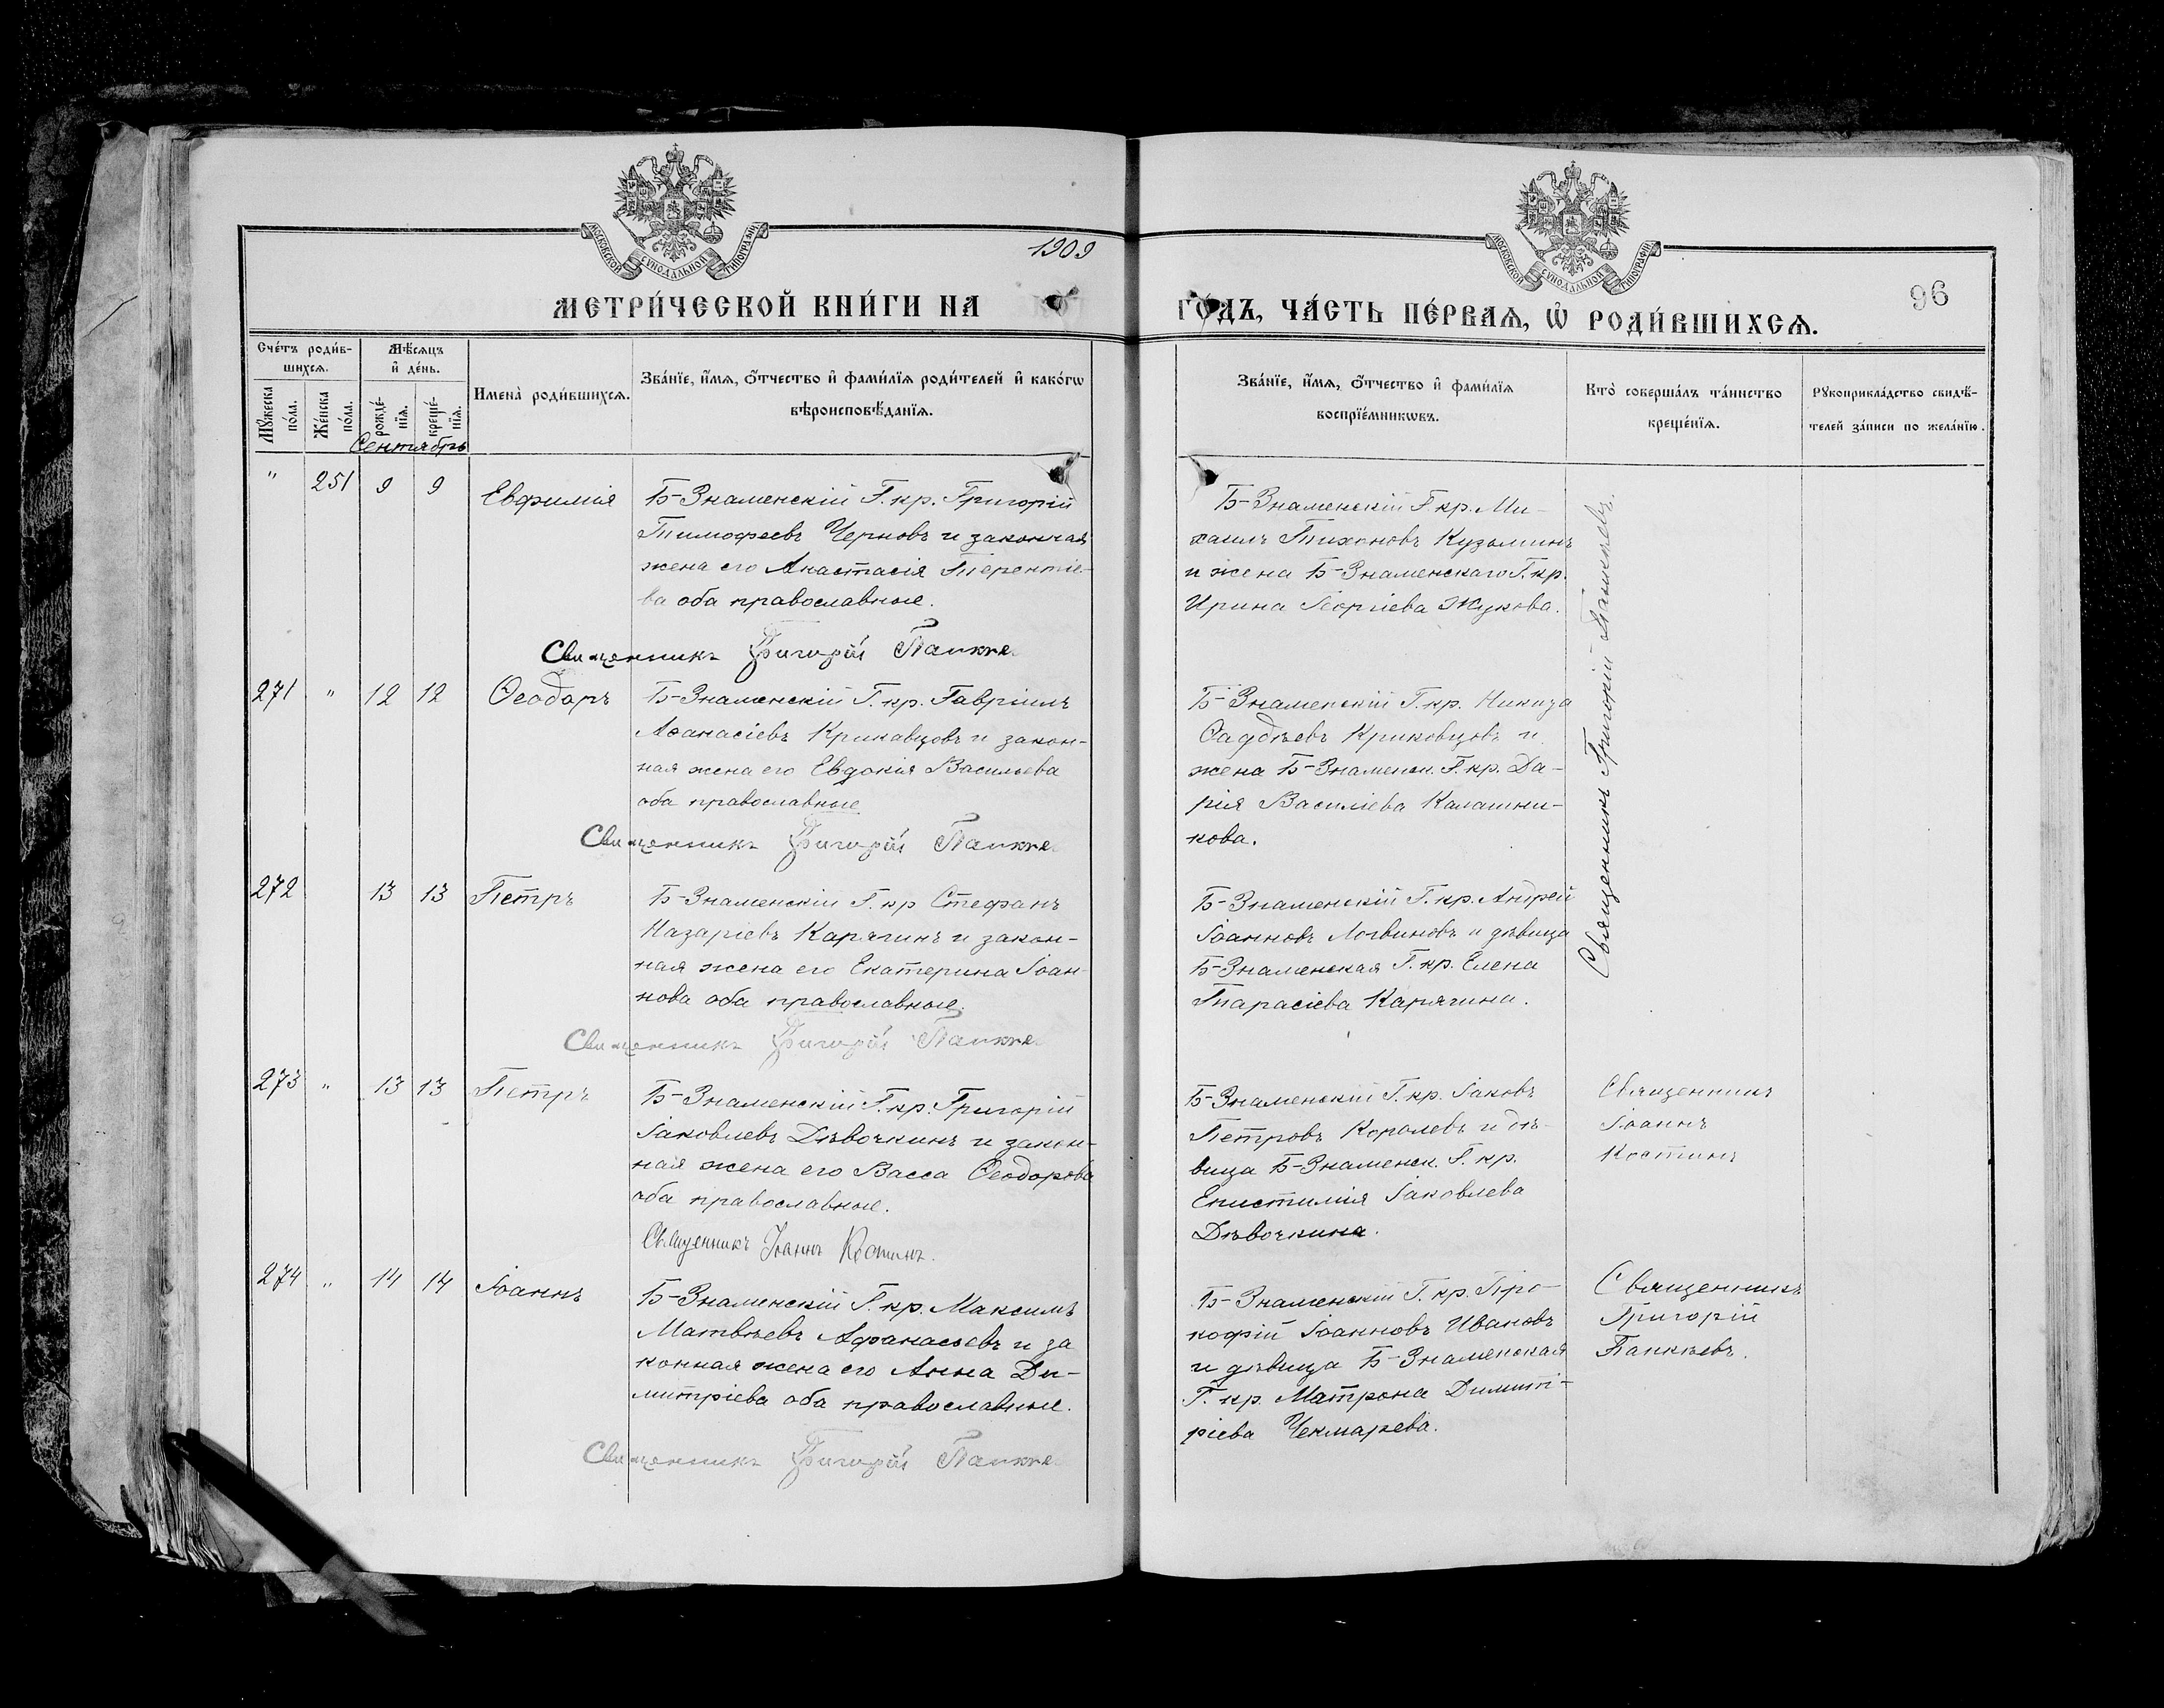 МОСКОВСКОЙ СѴНОДАЛЬНОЙ ТИПОГРАФІИ
МОСКОВСКОЙ СѴНОДАЛЬНОЙ ТИПОГРАФІИ
1909
96
МЕТРИ́ЧЕСКОЙ КНИ́ГИ НА
ГО́ДЪ, ЧА́СТЬ ПЕ́РВАЯ, Ѡ҆ РОДИ́ВШИХСЯ.
Сче́тъ роди́в-
шихсѧ.
Мꙋ́жеска по́ла.
Же́нска по́ла.
Мѣ́сѧцъ
и҆ де́нь.
рожде́-нїѧ.
креще́-нїѧ.
Имена̀ роди́вшихсѧ.
Зва́нїе, и҆́мѧ, ѻ҆́тчество и҆ фами́лїѧ роди́телей и҆ како́гѡ
вѣроисповѣ́данїѧ.
Зва́нїе, и҆́мѧ, ѻ҆́тчество и҆ фами́лїѧ
воспрїе́мникѡвъ.
Кто̀ соверша́лъ та́инство
креще́нїѧ.
Рꙋкоприкла́дство свидѣ́-
телей за́писи по жела́нїю.
Сентябрь
" 251 9 9 Евфимія
Б-Знаменскій Г. кр. Григорій
Тимофеевъ Черновъ и законная
жена его Анастасія Терентіе-
ва оба православные.
Священникъ Григорій Панкѣе
Б-Знаменскій Г кр. Ми-
хаилъ Тихоновъ Кузьминъ
и жена Б-Знаменскаго Г. кр.
Ирина Георгіева Жукова.
Священникъ Григорій Панкѣевъ.
271 " 12 12 Ѳеодоръ
Б-Знаменскій Г. кр. Гавріилъ
Аѳанасіевъ Крикавцовъ и закон-
ная жена его Евдокія Васильева
оба православные
Священникъ Григорій Панкѣе
Б-Знаменскій Г. кр. Никита
Ѳаддѣевъ Криковцовъ и
жена Б-Знаменск. Г. кр. Да-
рія Василіева Калашни-
кова.
272 13 13 Петръ
Б-Знаменскій Г. кр Стефанъ
Назаріевъ Карягинъ и закон-
ная жена его Екатерина Іоан-
нова оба православные.
Священникъ Григорій Панкѣе
Б-Знаменскій Г. кр. Андрей
Іоанновъ Логвиновъ и дѣвица
Б-Знаменская Г. кр. Елена
Тарасіева Карягина.
273 " 13 13 Петръ
Б-Знаменскій Г. кр. Григорій
Іаковлевъ Дѣвочкинъ и закон-
ная жена его Васса Ѳеодорова
оба православные.
Священникъ Іоаннъ Костинъ.
Б-Знаменскій Г. кр. Іаковъ
Петровъ Королевъ и дѣ-
вица Б-Знаменск. Г. кр.
Епистимія Іаковлева
Дѣвочкина.
Священникъ
Іоаннъ
Костинъ
274 " 14 14 Іоаннъ
Б-Знаменскій Г. кр. Максимъ
Матвѣевъ Афанасьевъ и за
конная жена его Анна Ди-
митріева оба православные.
Священникъ Григорій Панкѣе
Б-Знаменскій Г. кр. Про-
кофій Іоанновъ Ивановъ
и дѣвица Б-Знаменская
Г. кр. Матрона Димит-
ріева Чекмарева.
Священникъ
Григорій
Панкѣевъ.